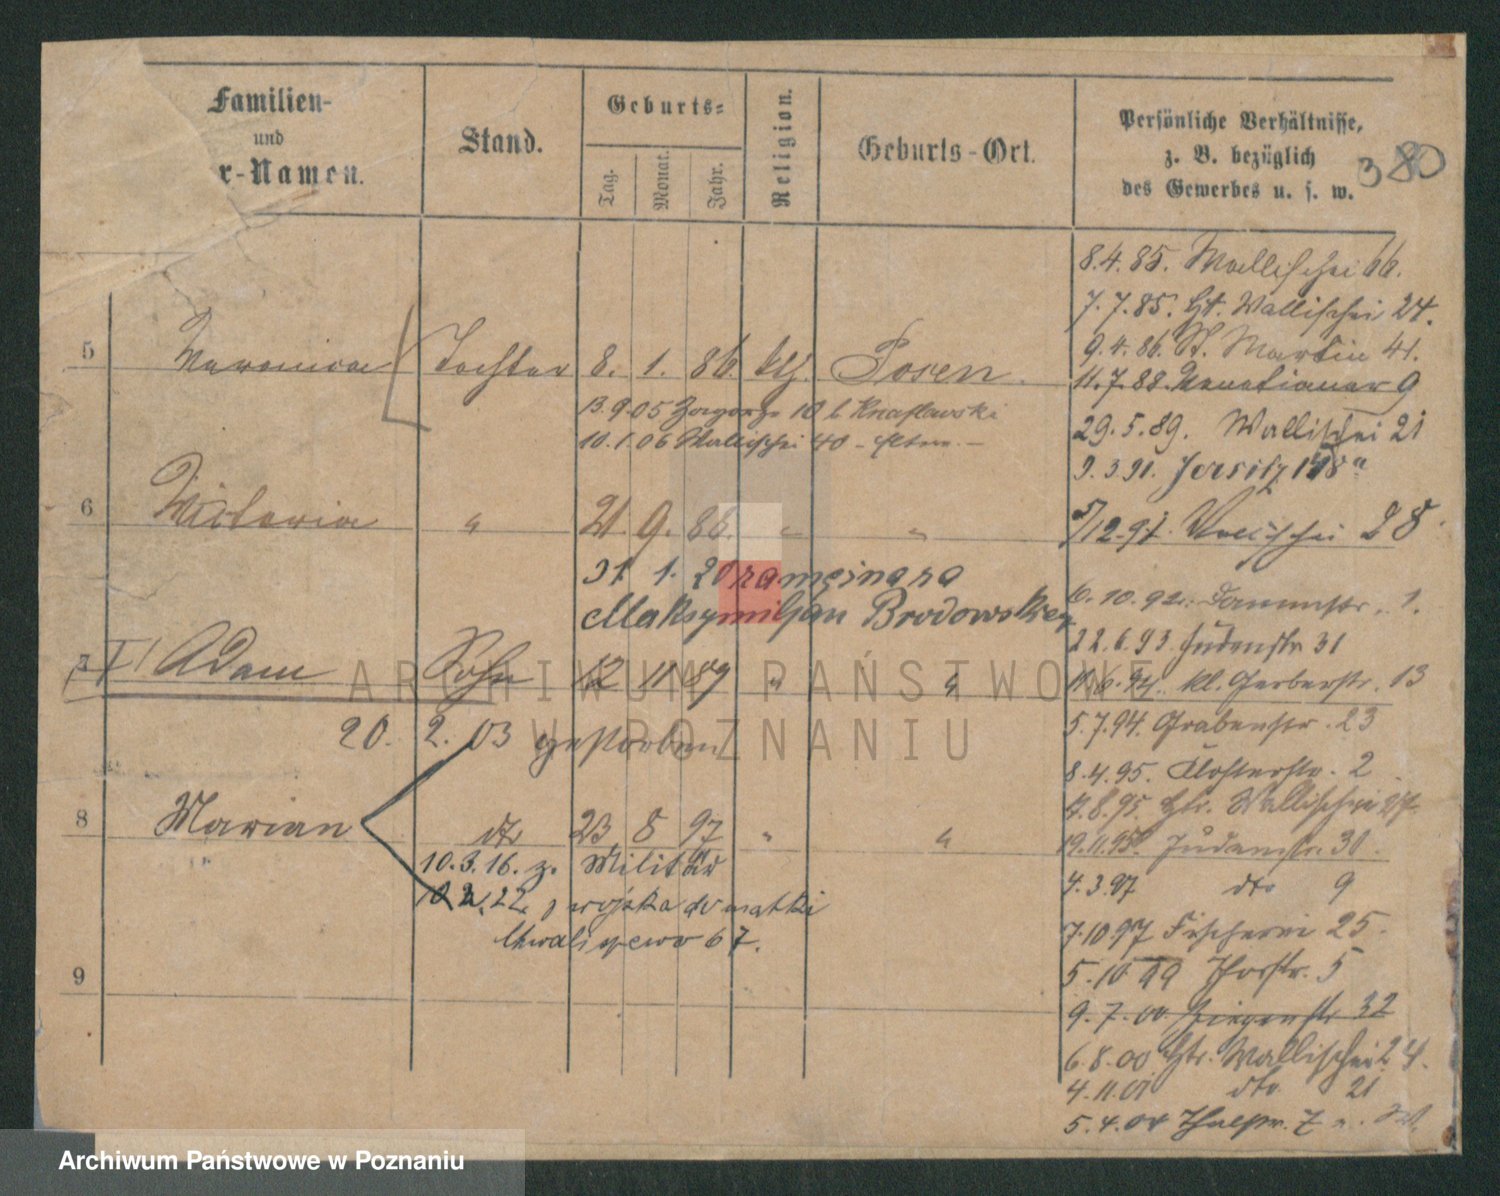 Familien-
und
r-Namen.
Stand.
Geburts-
Tag.
Monat.
Jahr.
Religion.
Geburts-Ort.
Persönliche Verhältnisse,
z. B. bezüglich
des Gewerbes u. s. w.
380
8.4.85. Wallischei 66.
7.7.85. Wallischei 24.
9.4.86. St. Martin 41.
5 Veronica Tochter 8. 1. 86. kth. Posen.
11.7.88. Venetianer 9
13.9.05 Zagorze 10 b Knaflewski
29.5.89. Wallischei 21
10.1.06 Wallischei 40 - Eltern. -
9.3.91. Jersitz 118a
6 Victoria " 21. 9. 86. " "
5/12.91. Wallischei 28.
31 1. 20 zamężna za
Maksymiljan Brodowskiey
6.10.92. Dammstr. 1.
22.6.93 Judenstr 31
7 Adam Sohn 12 11 89 " "
kl. Gerberstr. 13
20. 2. 03 gestorben
5.7.94. Grabenstr. 23
8.4.95. Klosterstr. 2
Wallischei
8 Marian dto 23 8 97 " "
19.11.95. Judenstr. 30.
10.3.16. z. Militär
4.3.97 dto 9
22, z wojska do matki
7.10.97 Fischerei 25.
Chwaliszewo 67.
9
5.10.99 Thorstr. 5
9.7.00. Ziegenstr 32
6.8.00 Htr. Wallischei 24.
4.11.01 dto 21
5.4.04 Thalstr. 7
ARCHIWUM PAŃSTWOWE
W POZNANIU
Archiwum Państwowe w Poznaniu